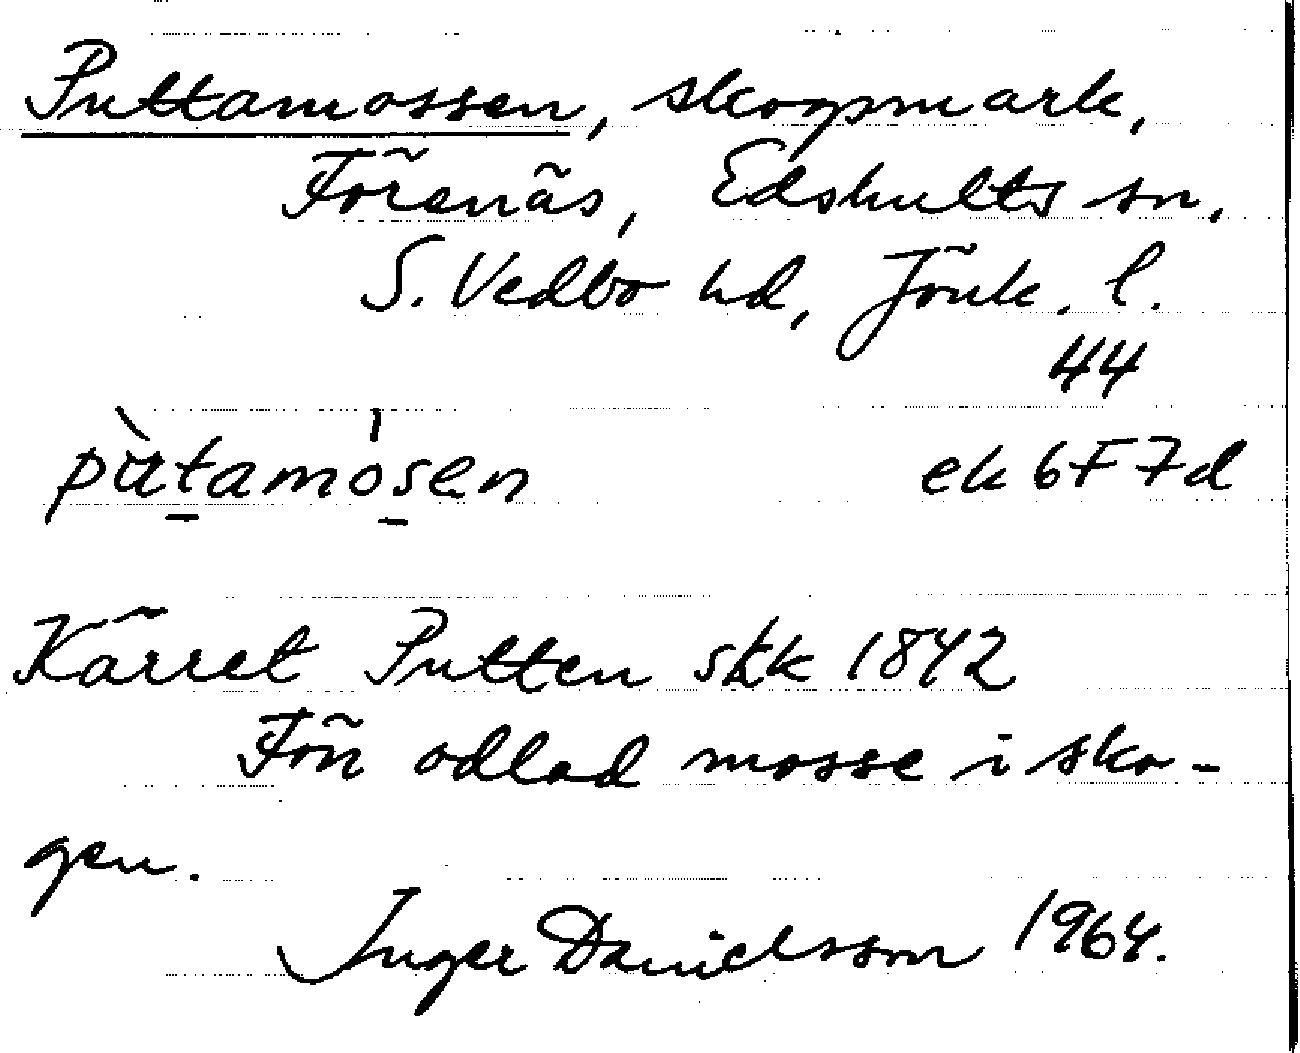 Puttamossen, skogsmark,
Förenäs, Edshults sn,
S. Vedbo hd, Jönk. l.
44
pùt̠amós̠en ek 6F7d
Kärret Putten skk 1842
Förr odlad mosse i sko-
gen.
Inger Danielsson 1964.